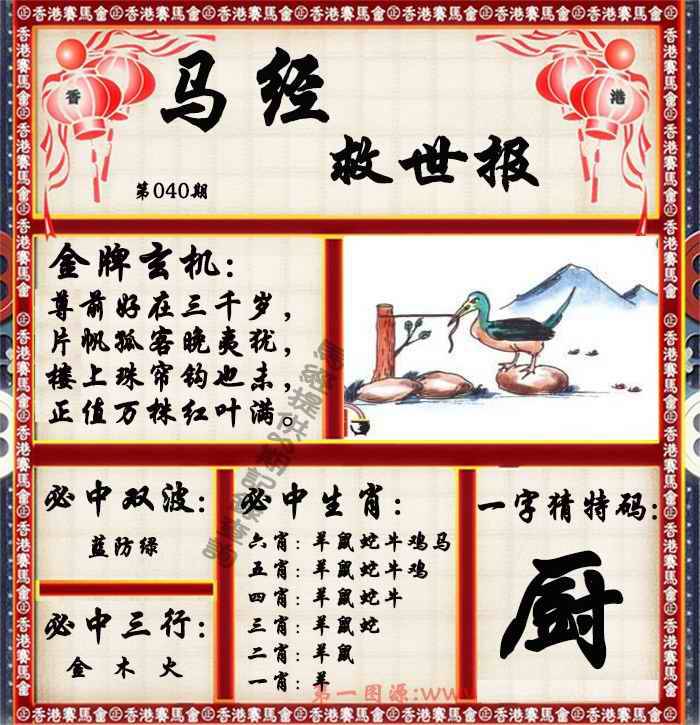 香港賽馬會
香 港
马经
救世报
第040期
金牌玄机：
尊前好在三千岁，
片帆孤客晚夷犹，
楼上珠帘钩也未，
正值万株红叶满。
必中双波：
蓝防绿
必中三行：
金 木 火
必中生肖：
六肖：羊鼠蛇牛鸡马
五肖：羊鼠蛇牛鸡
四肖：羊鼠蛇牛
三肖：羊鼠蛇
二肖：羊鼠
一肖：羊
一字猜特码：
厨
第一图源:www